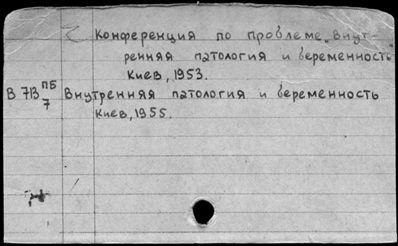 Конференция по проблеме „Внут-
ренняя патология и беременность
Киев, 1953.
В 713 ПБ/7 Внутренняя патология и беременность
Киев, 1955.